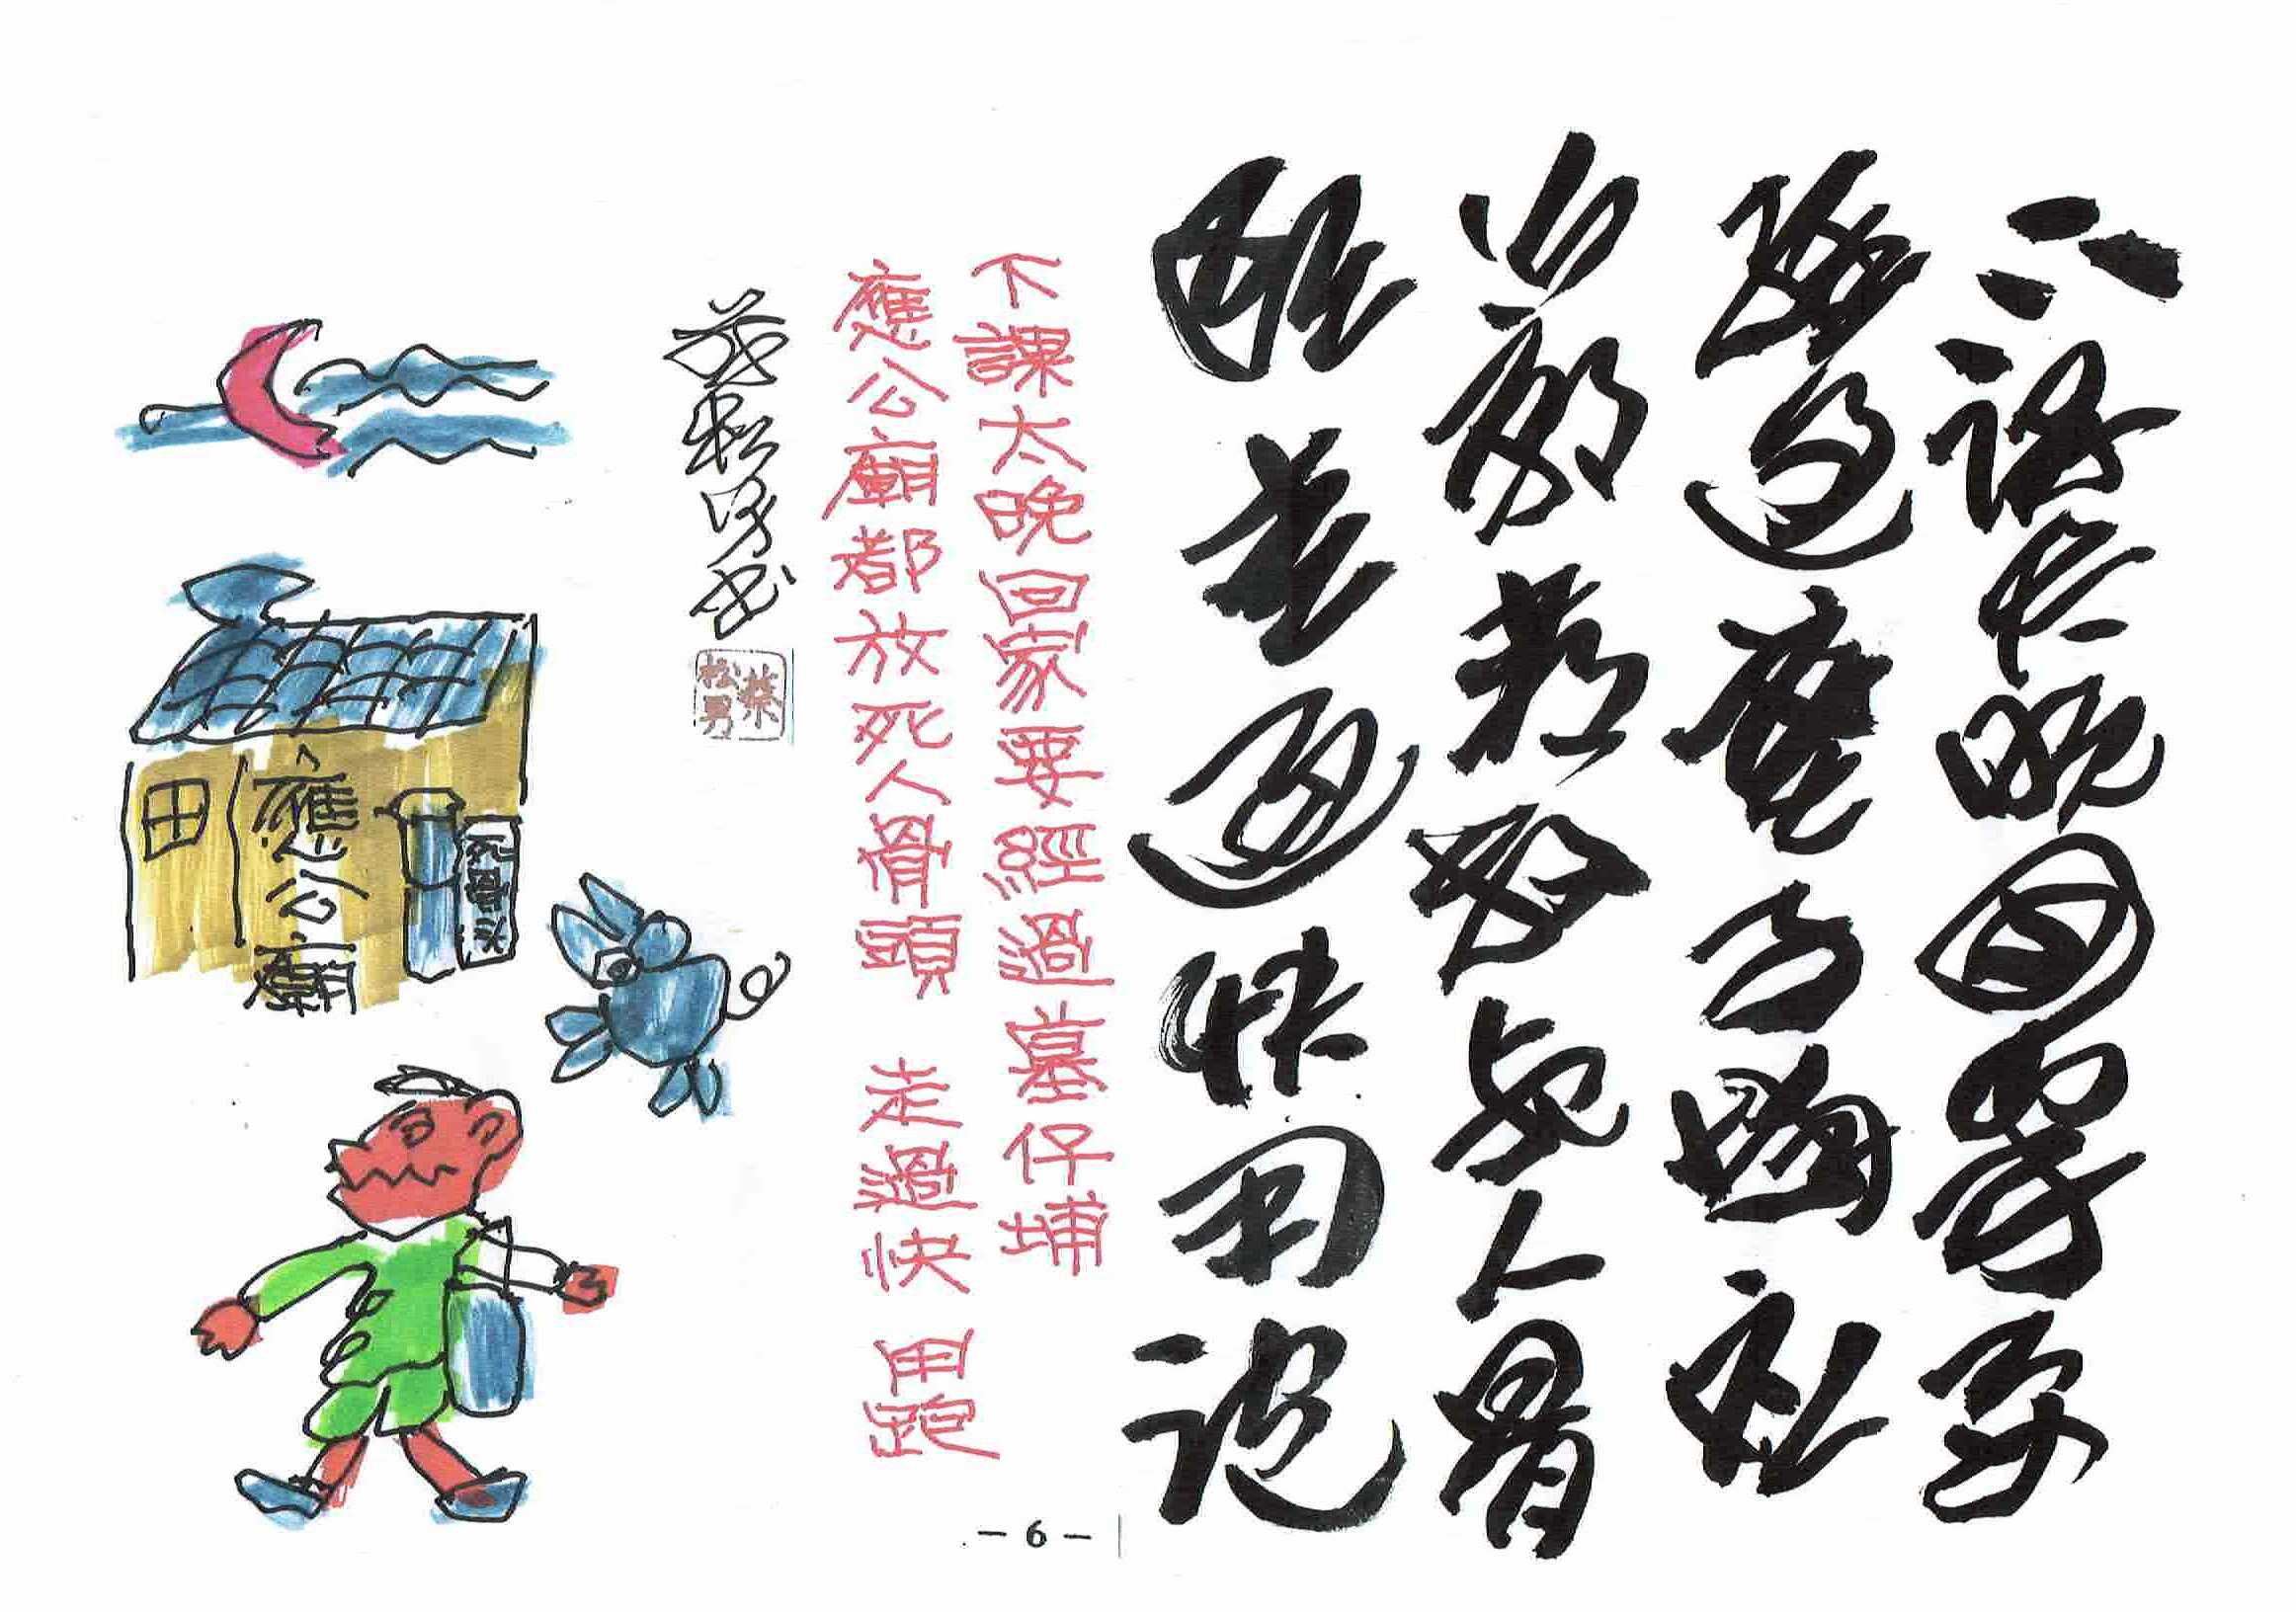 下課太晚回家要
經過墓仔埔應
公廟都放死人骨
頭走過快用跑
下課太晚回家要經過墓仔埔
應公廟都放死人骨頭 走過快用跑
蔡松男書
蔡松男
應公廟
死骨头
- 6 -